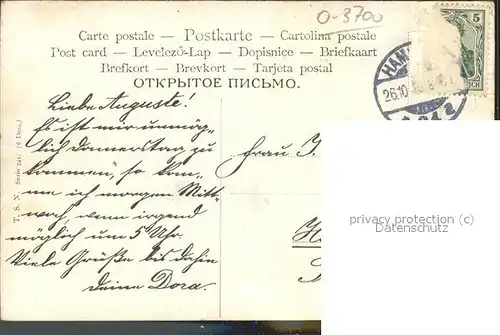 O-3700
Carte postale — Postkarte — Cartolina postale
Post card — Levelező-Lap — Dopisnice — Briefkaart
Brefkort — Brevkort — Tarjeta postal
ОТКРЫТОЕ ПИСЬМО.
5
HAM
26.10
T. S. N. Serie (6 Dess.)
Liebe Auguste!
Es ist mir unmög-
lich Donnerstag zu
kommen, so kom-
me ich morgen Mitt-
woch, wenn irgend
möglich um 5 Uhr.
Viele Grüße bis dahin
deine Dora.
Frau
privacy protection (c)
Datenschutz (c)